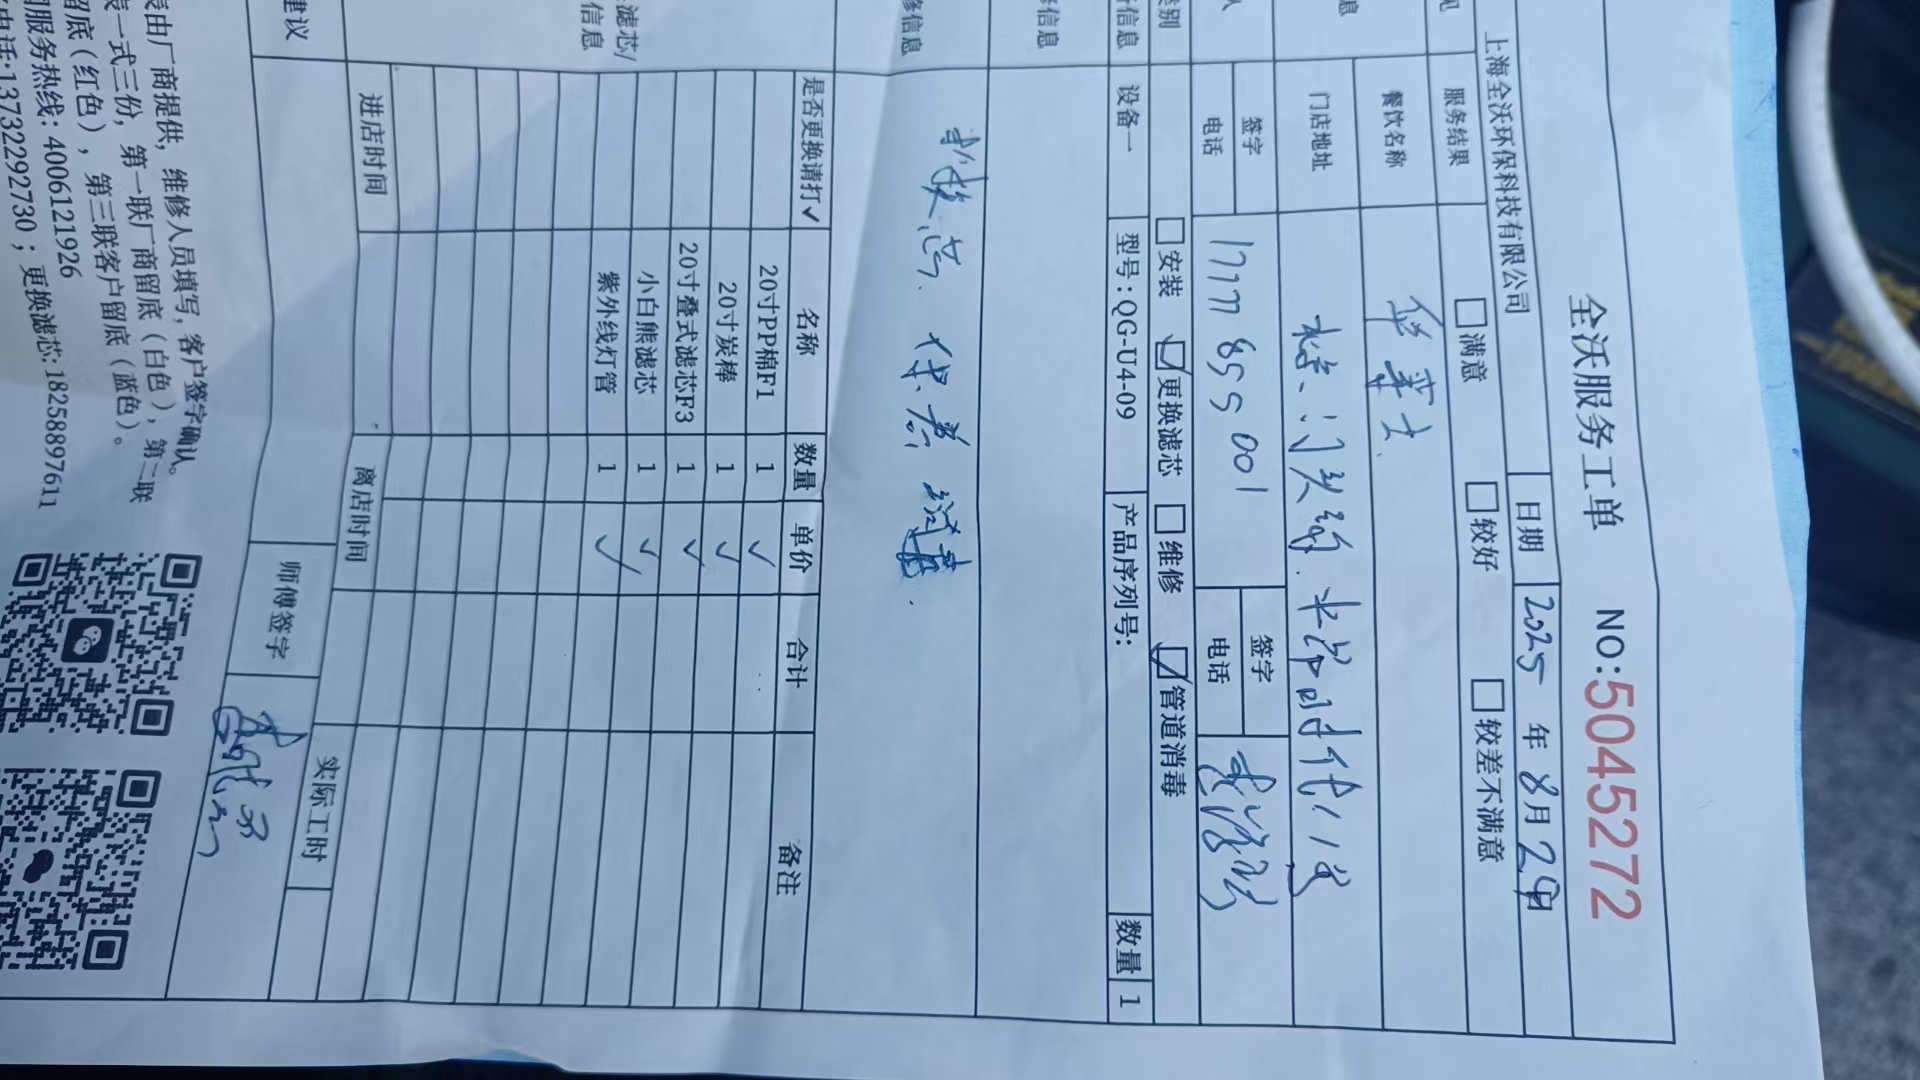 全沃服务工单 NO:5045272
上海全沃环保科技有限公司 日期 2025 年 8月 29日
服务结果 □满意 □较好 □较差不满意
餐饮名称 华莱士
门店地址
签字 签字
电话 17777 855 001 电话
□安装 ☑更换滤芯 □维修 ☑管道消毒
设备一 型号:QG-U4-09 产品序列号: 数量 1
信息
换芯 保养
信息
是否更换请打✓ 名称 数量 单价 合计 备注
20寸PP棉F1 1 ✓
20寸炭棒 1 ✓
20寸叠式滤芯F3 1 ✓
小白熊滤芯 1 ✓
紫外线灯管 1 ✓
滤芯/
信息
进店时间 离店时间 实际工时
建议 师傅签字
由厂商提供,维修人员填写,客户签字确认。
一式三份,第一联厂商留底(白色),第二联
留底(红色),第三联客户留底(蓝色)。
服务热线:4006121926
电话:13732292730;更换滤芯:18258897611